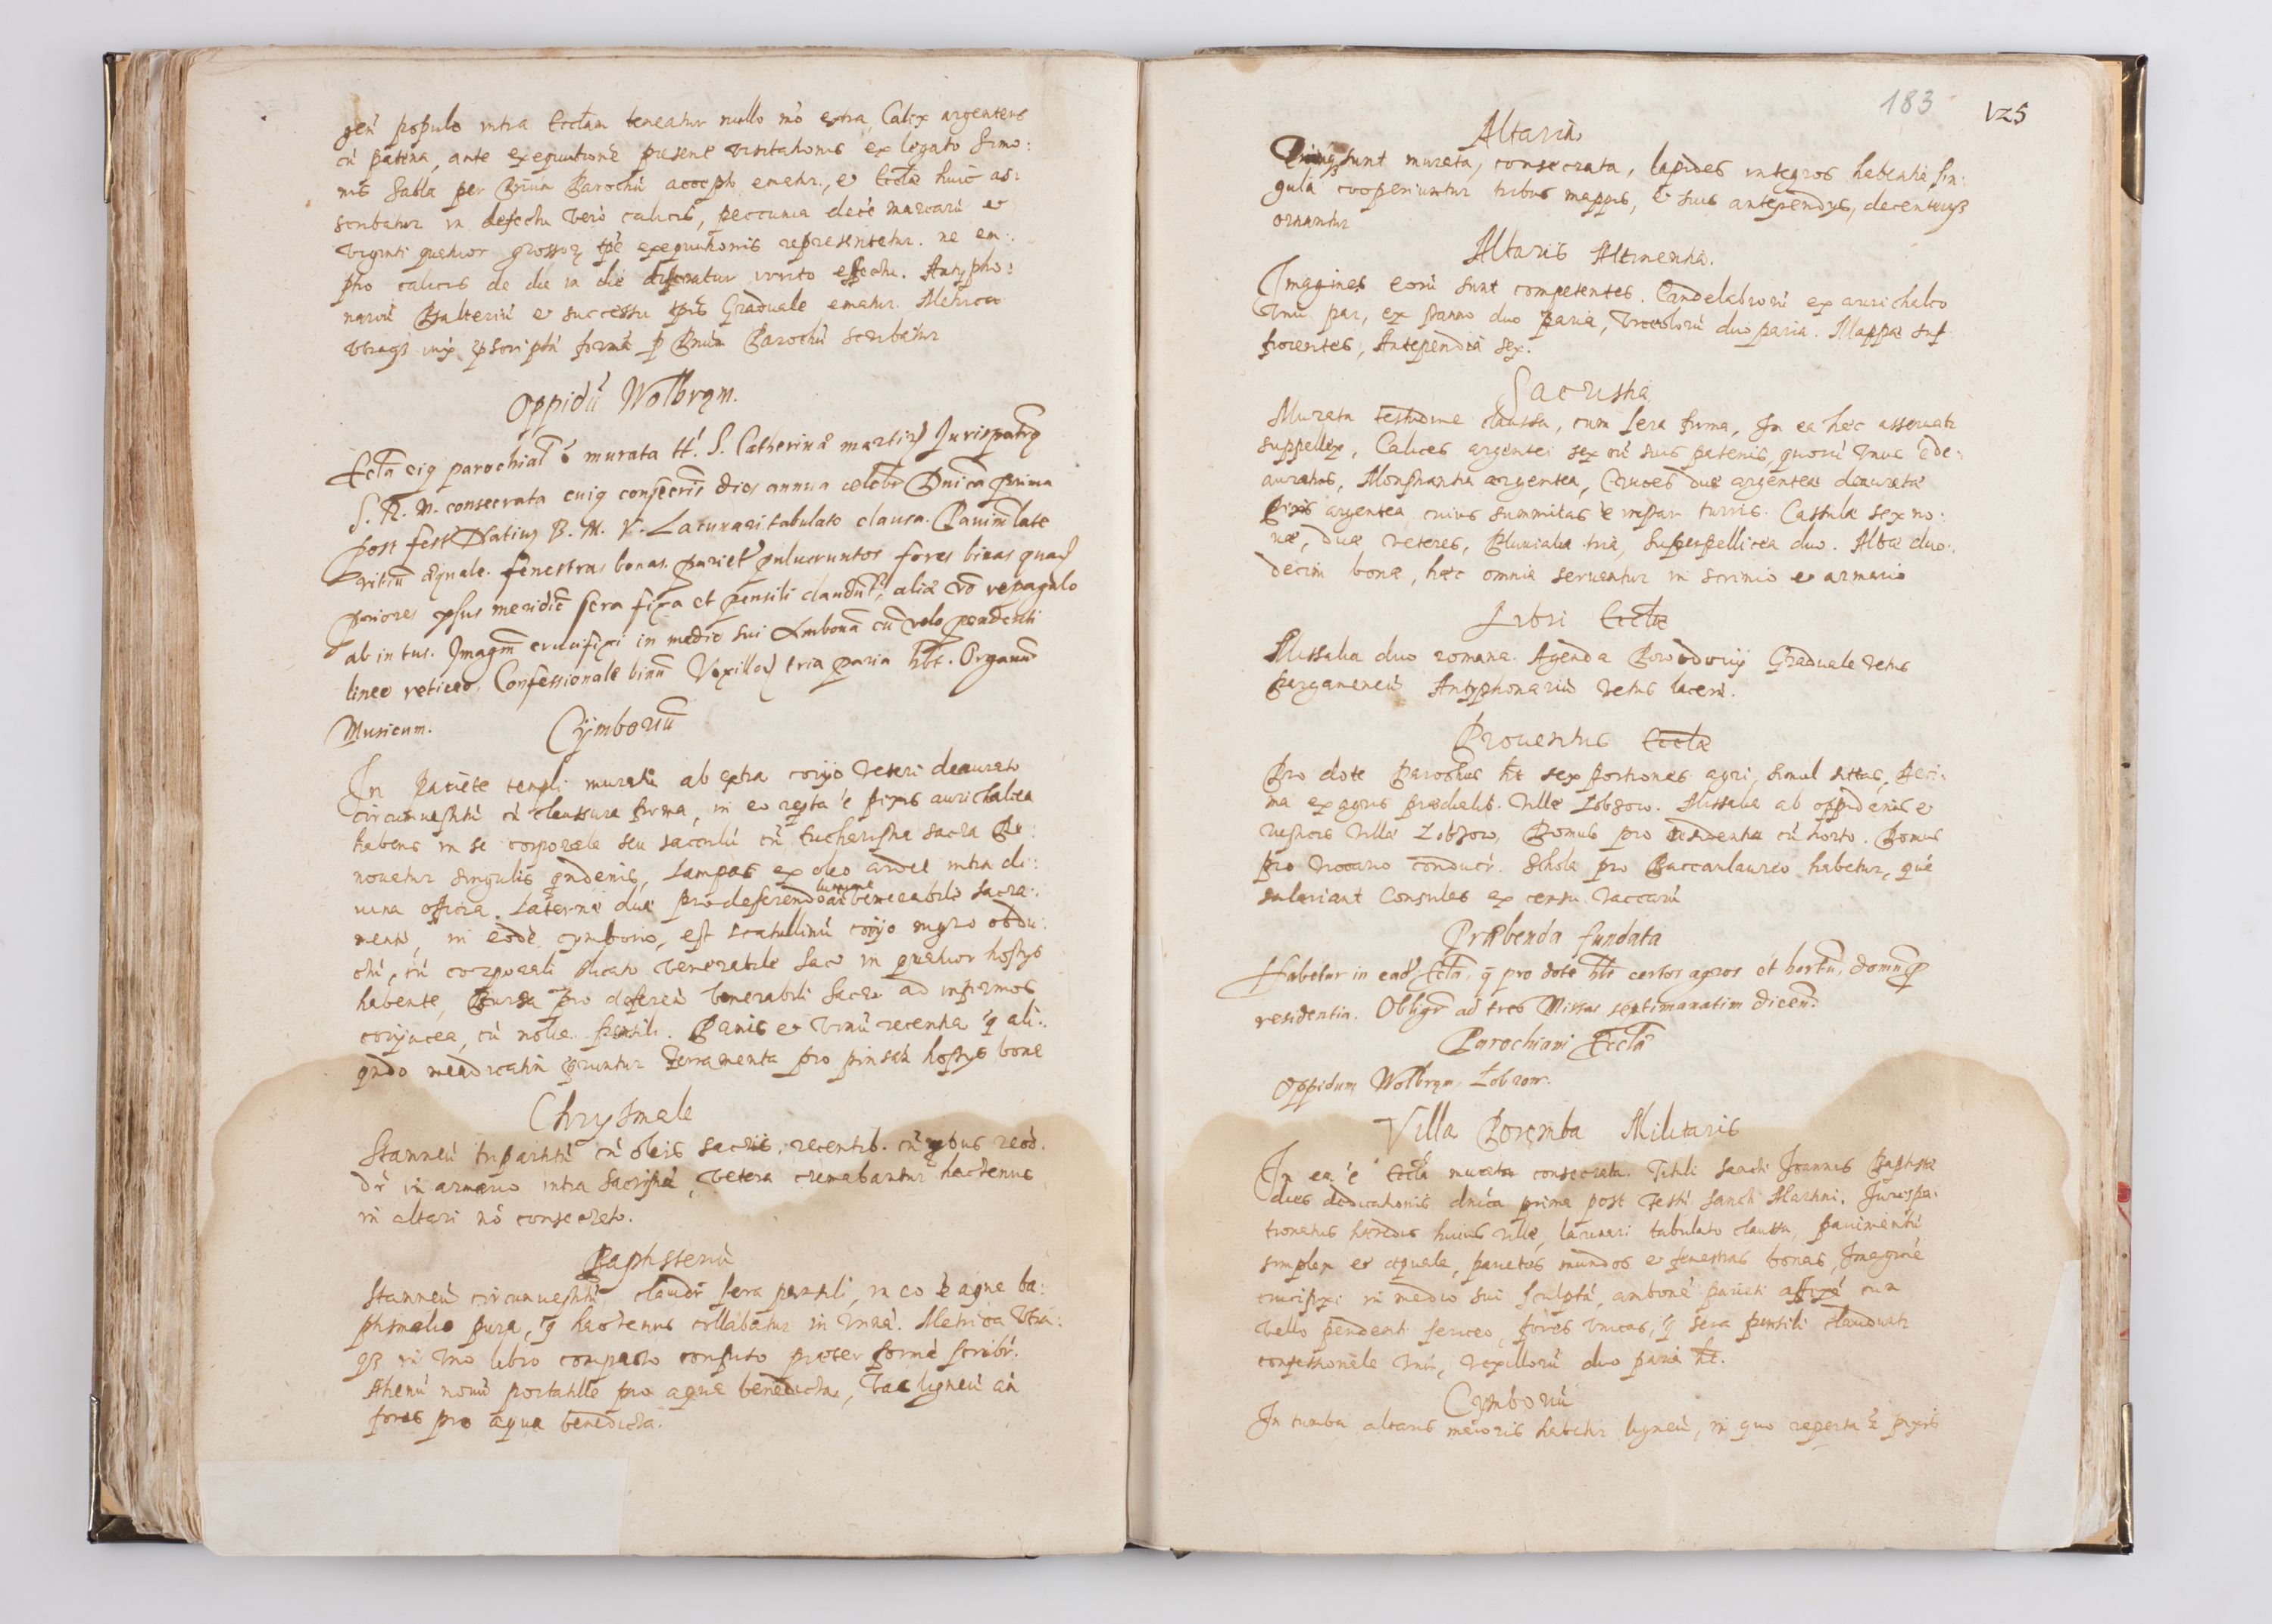 gen̄ populo intra Eccłam teneatur nullo mō extra, Calix argenteus
cū patena, ante exequutionē presenē visitationis ex legato Simo:
nis Sabla per Parochū accepto ematur, et Ecclæ huic as:
scribatur in defectu vero calicis, peccunia decē marcarū et
viginti quatuor grossoꝝ tpē exequutionis representetur. ne em:
ptio calicis de die in diē differatur irrito effectu. Antypho:
nariū Psalteriū et successu tpis Graduale ematur. Metrica
utraqꝫ iux pscriptā formā p Parochū scribatur
Oppidū Wolbrąm.
Eccła eiq parochial ē murata tt. S. Catherinæ martiris
S. R. M. consecrata cuiq consecris dies annua celebr Dnica prima
post fest Natius B. M. V. Lacunari tabulato clausa. Pavim late
ritiū æquale. fenestras bonas. pariet pulueruntos fores binas quaꝝ
priores psus meridiē sera fixa et pensili claudunt, aliæ vō repagulo
ab intus. Imagm̄ crucifixi in medio sui Ambonā cū velo pendenti
lineo reticeo, Confessionale binū Vexilloꝝ tria paria hbt. Organū
Musicum. Cymboriū
In Pariete templi muratū ab extra corijo veteri deaurato
circumuestitū cū clausura firma, in eo repta ē pixis aurichalcea
habens in se corporale seu sacculū cū Eucharistia sacra Re:
nouatur singulis qndenis, Lampas ex oleo ardet intra di:
uina officia. Laternæ duæ pro deferendo lumine venerabilis sacra:
menti, in eodē cymborio, est scatullinū corijo nigro obdu:
ctū, cū corporali plicato venerabile Sacr in quatuor hostys
habente, Bursa pro deferen venerabili Sacr ad infirmos
corijacea, cū nolæ pensili. Panis et vinū recentia q ali:
qndo mendicatim qruntur Ferramenta pro pinsen hostys bona
Chrysmale
Stanneū tripartitū cū oleis sacris, recentib. cū qbus recōd.
dr in armario intra Sacristiā, vetera cremabantur hactenus
in altari nō consecrato.
Baptisteriū
Stanneū circumuestitū claudr sera pensili, in eo ē aqua ba:
ptismalis pura, q hactenus collabatur in vnā. Metrica vtra:
qꝫ in vno libro compacto confuso præter formā scribr.
Ahenū nouū portatile pro aqua benedicta, Vas ligneū an
fores pro aqua benedicta.
183 125
Altaria
sunt murata, consecrata, lapides integros habentia sin:
gula cooperiuntur tribus mappis, et suis antependys, decenterqꝫ
ornantur
Altaris Attinentia.
Imagines eorū sunt competentes. Candelabrorū ex aurichalco
vnū par, ex stanno duo paria, Vrceolorū duo paria. Mappæ suf
ficientes, Antependia sex.
Sacristia
Murata testudine clausa, cum sera firma, In ea hæc asseruatr
suppellex, Calices argentei sex cū suis patenis, quorū vnus ē de:
auratus, Monstrantia argentea, Cruces duæ argenteæ deauratæ
Pixis argentea cuius summitas ē instar turris. Casulæ sex no:
uæ, duæ veteres, Pluuialia tria, Superpellicea duo. Albæ duo:
decim bonæ, hæc omnia seruantur in scrinio et armario
Libri Ecclæ
Missalia duo romana. Agenda Graduale vetus
Pargameneū Antyphonariū vetus lacerū.
Prouentus Ecclæ
Pro dote Parochus ht sex portiones agri, simul sittas, Deci:
ma ex agris prædialib. villæ Lobzow. Missalia ab oppidanis et
ruticis villæ Lobzow, Domus pro residentia cū horto. Domus
pro vicario conducr. Schola pro Baccanlaureo habetur, quē
salariant Consules ex censu vaccarū
Præbenda fundata
Habetur in ead Eccła, q pro dote hbt certos agros et hortū, domū p
residentia. Obligr ad tres Missas septimanatim dicen.
Parochiani Ecclæ
Oppidum Wolbrąm, Lobzow.
Villa Poręmba Militaris
In ea ē Eccła murata consecrata. Tituli sancti Joannis Baptistæ
dies dedicationis dnica prima post Festū sancti Martini. Jurispa:
tronatus hæredis huius villæ, lacunari tabulato clausa, pauimentū
simplex et æquale, parietes mundos et fenestras bonas, Imaginē
crucifixi in medio sui sculptā, ambonē parieti affixā cum
vello pendenti sericeo, fores vnicas, q sera pensili clauduntr
confessionale vnū, vexillorū duo paria ht.
Cymboriū
In tumba altaris maioris habetur ligneū, in quo reperta ē pixis